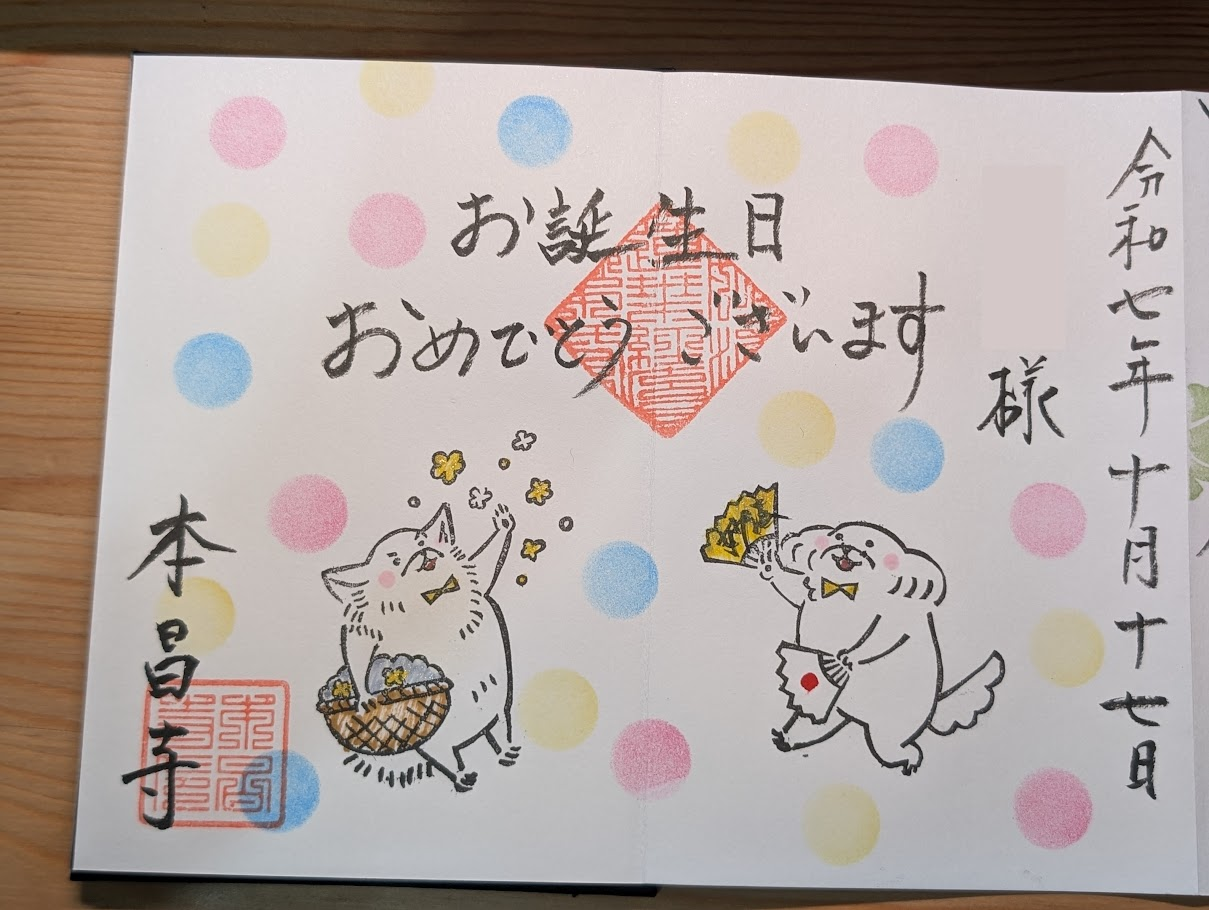 令和七年十月十七日
様
お誕生日
おめでとうございます
本昌寺